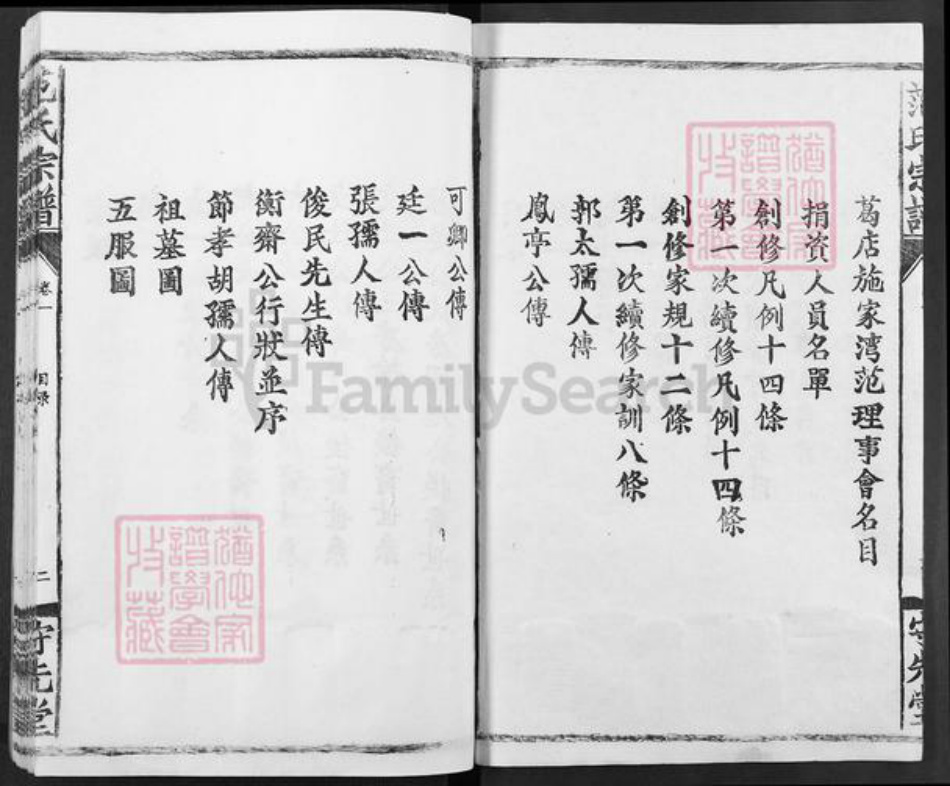 葛店施家湾范理事會名目
捐資人員名單
創修凡例十四條
第一次續修凡例十四條
創修家規十二條
第一次續修家訓八條
郭太孺人傳
鳳亭公傳
可卿公傳
廷一公傳
張孺人傳
俊民先生傳
衡齋公行狀並序
節孝胡孺人傳
祖墓圖
五服圖
范氏宗譜
卷一
目錄
二
守先堂
范氏宗譜
守先堂
FamilySearch
譜學會
收藏
譜學會
收藏